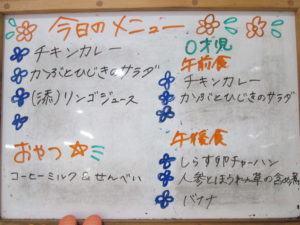 今日のメニュー
チキンカレー
カブとひじきのサラダ
(添)リンゴジュース
おやつ
コーヒーミルク & せんべい
0才児
午前食
チキンカレー
カブとひじきのサラダ
午後食
しらすチャーハン
人参とほうれん草の含め煮
バナナ